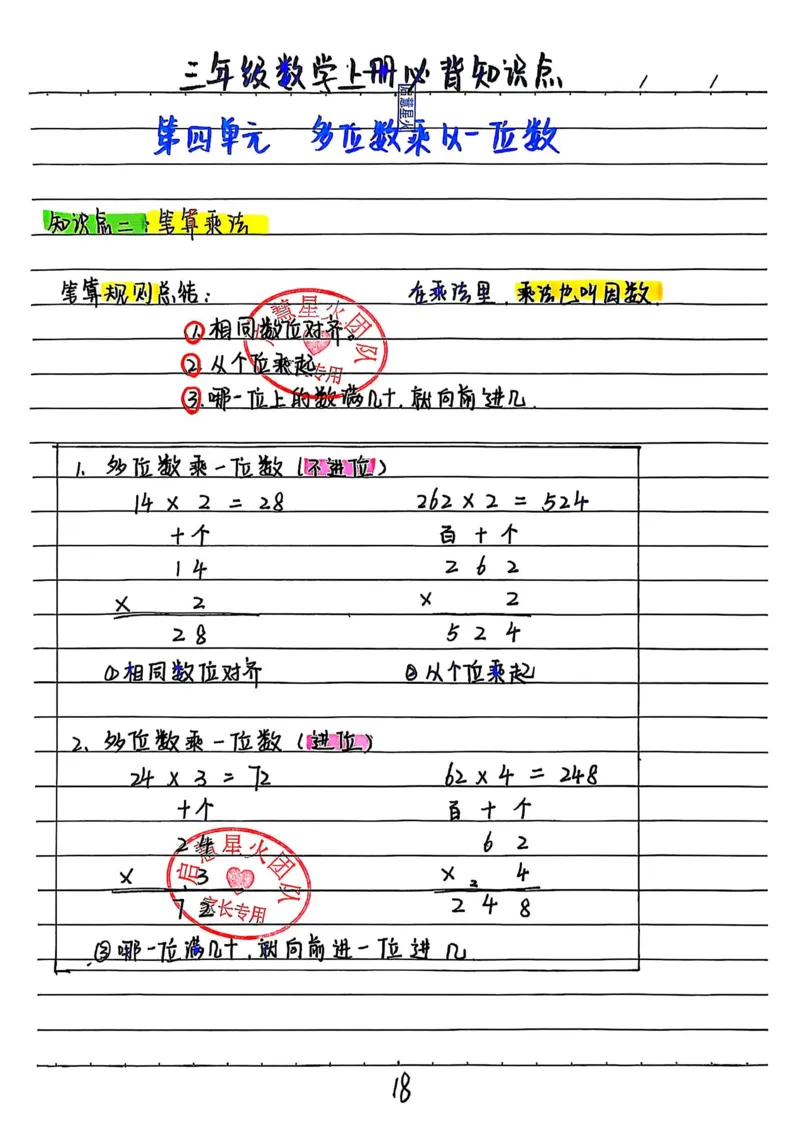 三年级数学上册必背知识点 / /
启慧星火
第四单元 多位数乘以一位数
知识点二：笔算乘法
笔算规则总结： 在乘法里，乘法也叫因数.
①.相同数位对齐。
②.从个位乘起
③.哪一位上的数满几十,就向前进几.
启慧星火团队
家长专用
1. 多位数乘一位数（不进位）
14 × 2 = 28 262 × 2 = 524
十个 百十个
14 262
× 2 × 2
28 524
①相同数位对齐 ②从个位乘起
2. 多位数乘一位数（进位）
24 × 3 = 72 62 × 4 = 248
十个 百十个
24 62
× 3 × 2 4
72 248
启慧星火团队
家长专用
③哪一位满几十,就向前进一位进几
18